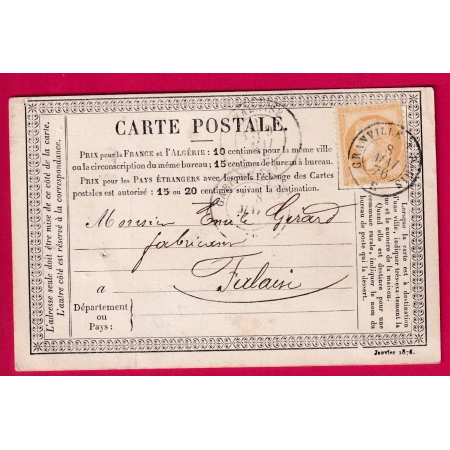 CARTE POSTALE.
PRIX pour la FRANCE et l'ALGÉRIE: 10 centimes pour la même ville
ou la circonscription du même bureau; 15 centimes de bureau à bureau.
PRIX pour les PAYS ÉTRANGERS avec lesquels l'échange des Cartes
postales est autorisé : 15 ou 20 centimes suivant la destination.
L'adresse seule doit être mise de ce côté de la carte.
L'autre côté est réservé à la correspondance.
Monsieur Emile Gérard
fabricien
à Falaise
Département
ou
Pays:
GRANVILLE
8
MAI
76
Lorsque la carte est à destination
d'une ville, indiquer très-
et le numéro de la maison.
Quand elle est destinée pour une
commune rurale, indiquer le nom du
bureau de poste qui la dessert.
Janvier 1876.